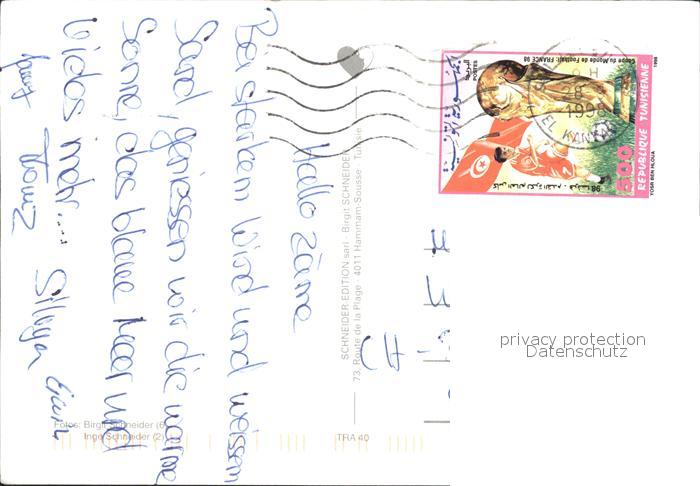 Hallo Zäme
Bei starkem Wind und weissem
Sand, geniessen wir die warme
Sonne, das blaue Meer und
Vieles mehr....
Silvya Erwin
SCHNEIDER EDITION sarl - Birgit SCHNEIDER
73, Route de la Plage - 4011 Hammam-Sousse - Tunisie
Fotos: Birgit Schneider (6)
Inge Schneider (2)
TRA 40
Coupe du Monde de Football: FRANCE 98
1998
POSTES
البريد
الجمهورية التونسية
كأس العالم لكرة القدم - فرنسا 98
500
REPUBLIQUE TUNISIENNE
YOSR BEN HLOUA
28
1998
EL KANTAOUI
privacy protection
Datenschutz